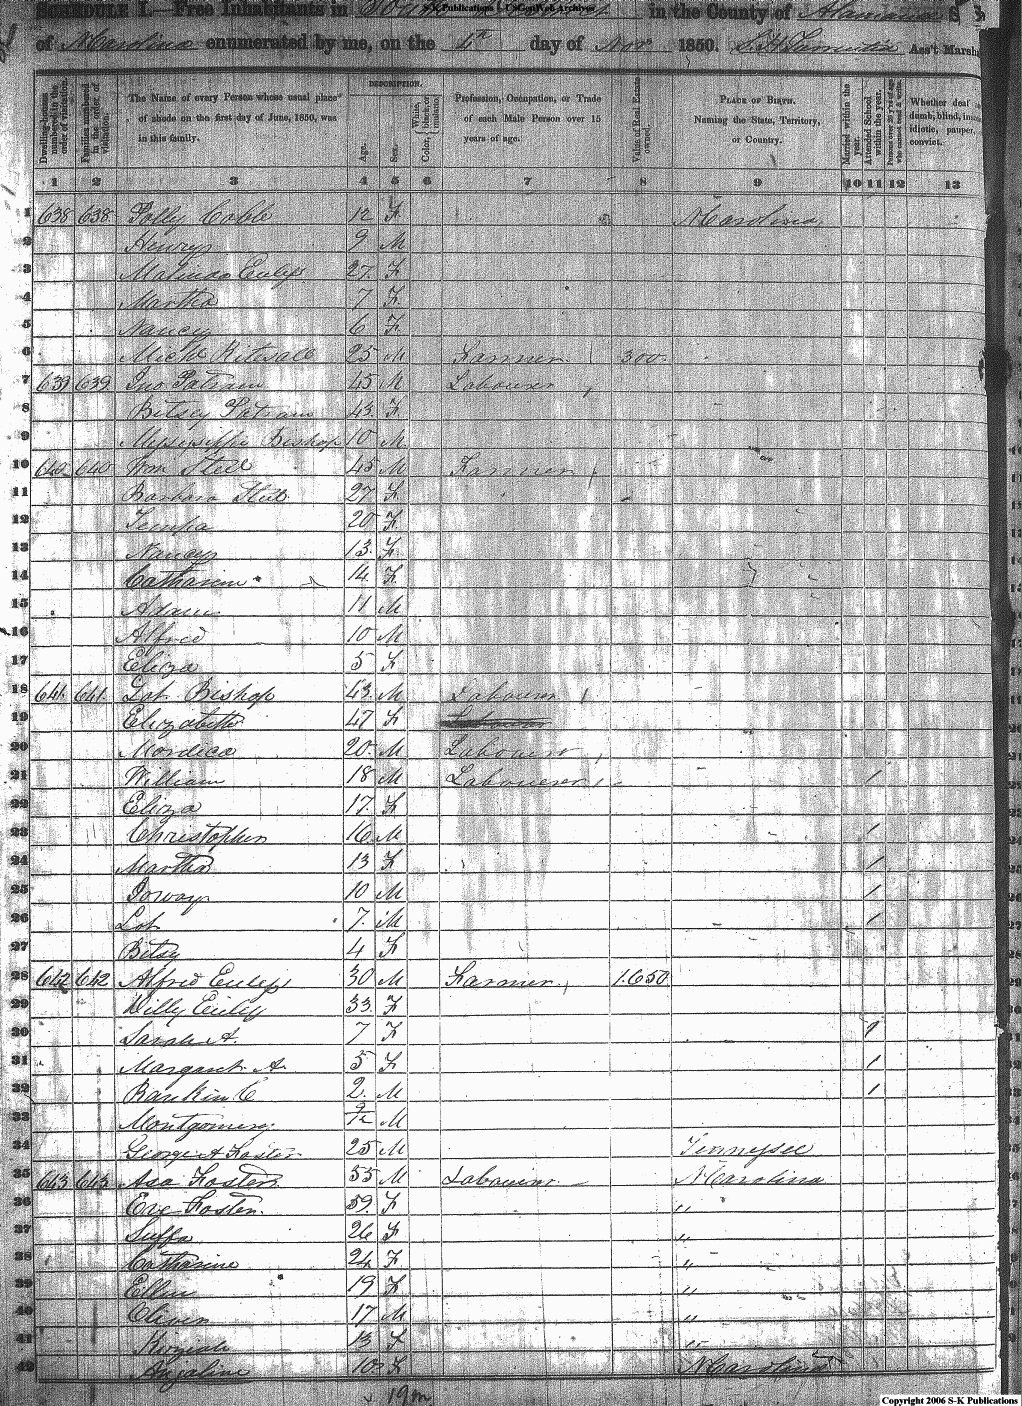 S-K Publications - USGenWeb Archives
SCHEDULE I.—Free Inhabitants in in the County of Alamance S
of N Carolina enumerated by me, on the 4th day of Nov 1850. Ass't Marsha
Dwelling-houses numbered in the order of visitation.
Families numbered in the order of visitation.
The Name of every Person whose usual place of abode on the first day of June, 1850, was in this family.
DESCRIPTION.
Age.
Sex.
Color, White, black, or mulatto.
Profession, Occupation, or Trade of each Male Person over 15 years of age.
Value of Real Estate owned.
PLACE OF BIRTH. Naming the State, Territory, or Country.
Married within the year.
Attended School within the year.
Persons over 20 y'rs of age who cannot read & write.
Whether deaf dumb, blind, insane idiotic, pauper, convict.
1 2 3 4 5 6 7 8 9 10 11 12 13
1 638 638 Polly Cobble 12 F N Carolina
2 Henry 9 M
3 Malinda Euliss 27 F
4 Martha 7 F
5 Nancy 6 F
6 25 M Farmer 300
7 639 639 Jno Patram 45 M Labourer
8 Betsey Patram 43 F
9 Mississippi Bishop 10 M
10 640 640 Wm Steel 45 M Farmer
11 Barbara Steel 27 F
12 20 F
13 Nancy 13 F
14 Catharine 14 F
15 Adam 11 M
16 Alfred 10 M
17 Eliza 5 F
18 641 641 Lot Bishop 43 M Labourer
19 Elizabeth 47 F Labourer
20 Mordica 20 M Labourer
21 William 18 M Labourer 1
22 Eliza 17 F
23 Christopher 16 M 1
24 Martha 13 F 1
25 10 M 1
26 Lot 7 M 1
27 Betsy 4 F
28 642 642 Alfred Euliss 30 M Farmer 1.650
29 Willy Euliss 33 F
30 Sarah A. 7 F 1
31 Margaret A. 5 F 1
32 Rankin C 2 M 1
33 Montgomery 9/12 M
34 George A Foster 25 M Tennessee
35 643 643 Asa Foster 55 M Labourer N Carolina
36 Eve Foster 59 F "
37 26 F "
38 Catharine 24 F "
39 Ellen 19 F "
40 Oliver 17 M "
41 Keziah 13 F "
42 Anjaline 10 F N Carolina
19 m
Copyright 2006 S-K Publications